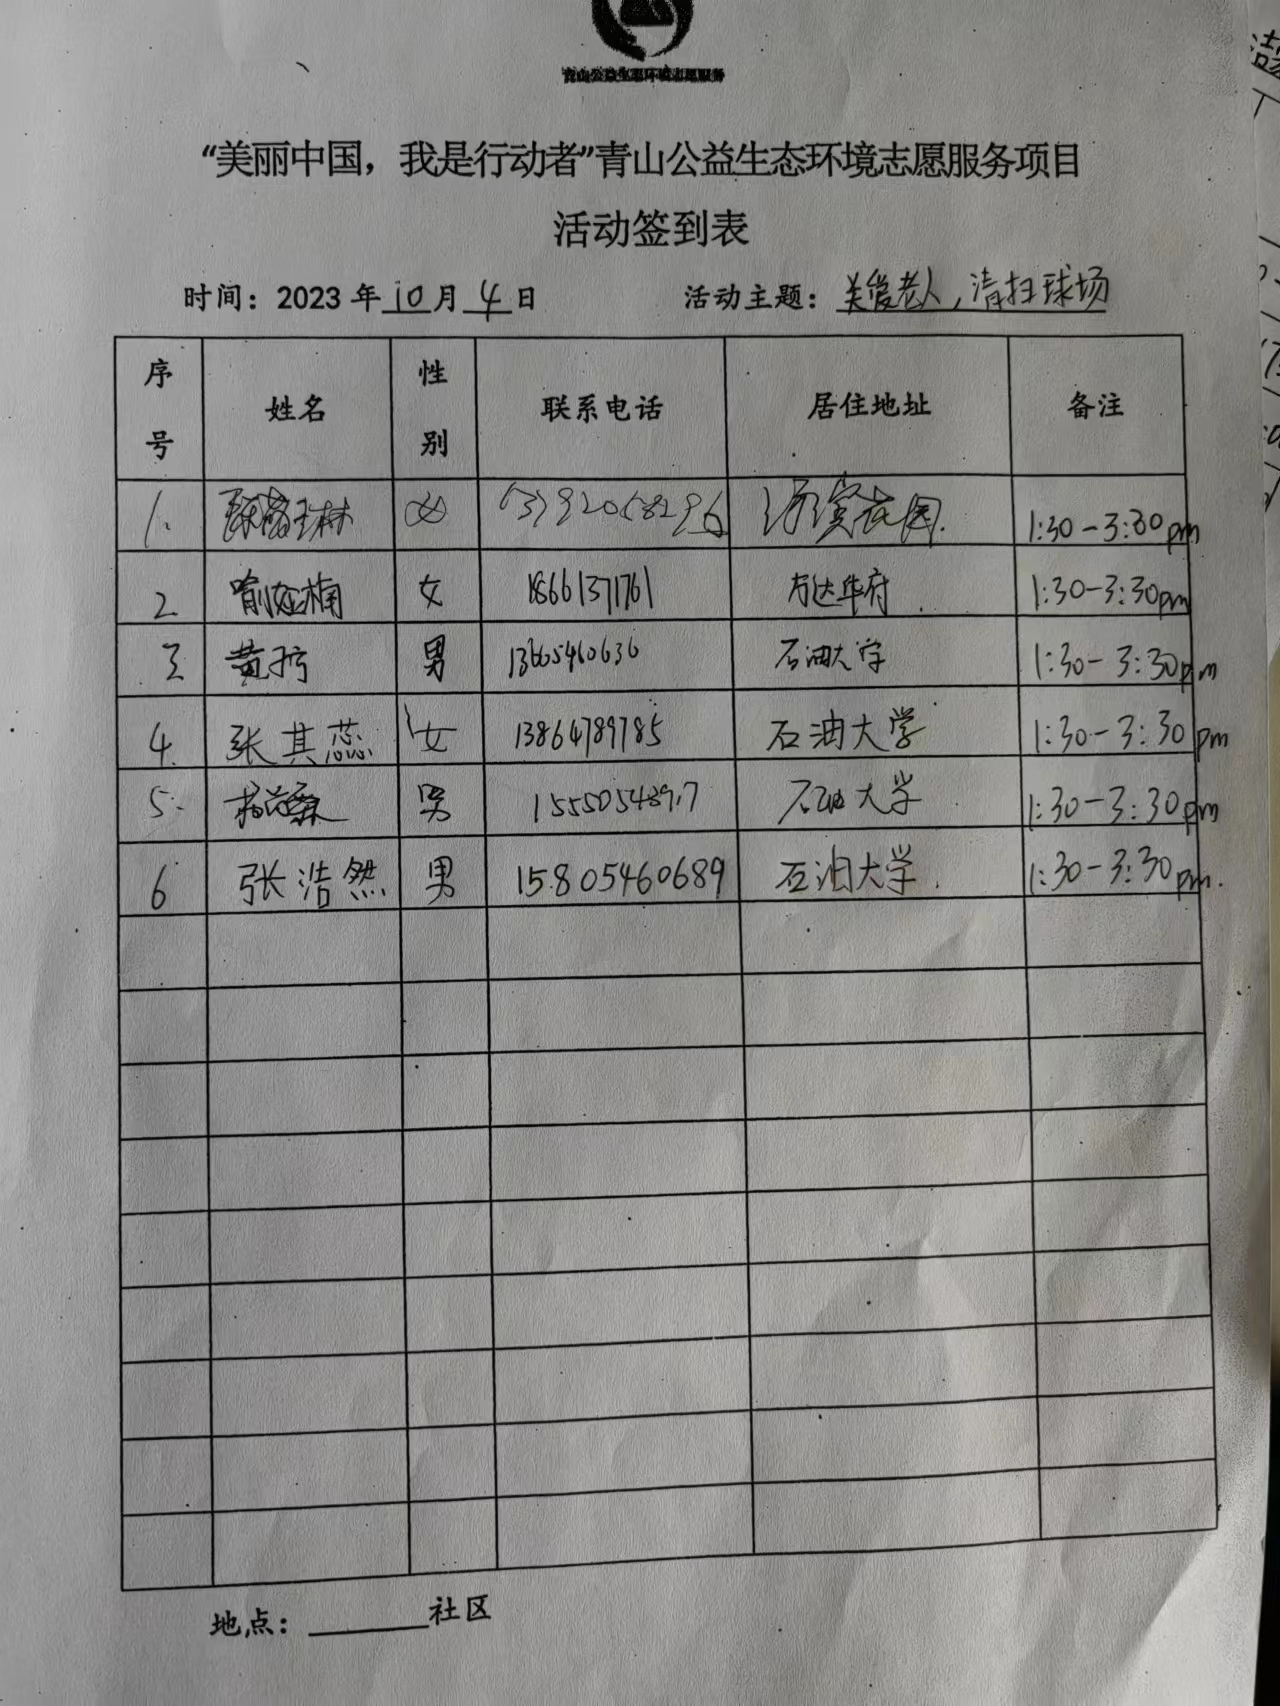 青山公益生态环境志愿服务
“美丽中国，我是行动者”青山公益生态环境志愿服务项目
活动签到表
时间：2023年10月4日 活动主题：关爱老人，清扫球场
序号 姓名 性别 联系电话 居住地址 备注
1. 女 花园. 1:30-3:30pm
2 女 18661371761 万达华府. 1:30-3:30pm
3 男 13605460636 石油大学 1:30-3:30pm
4. 张其蕊 女 13864789785 石油大学 1:30-3:30pm
5. 男 石油大学 1:30-3:30pm
6 张浩然 男 15805460689 石油大学. 1:30-3:30pm.
地点：______社区